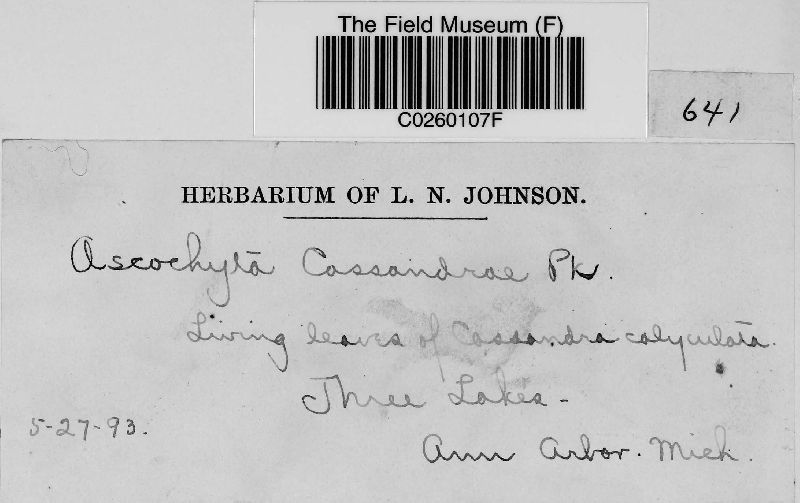 The Field Museum (F)
C0260107F
641
HERBARIUM OF L. N. JOHNSON.
Ascochyta Cassandrae Pk.
Living leaves of Cassandra calyculata.
Three Lakes -
5-27-93.
Ann Arbor. Mich.